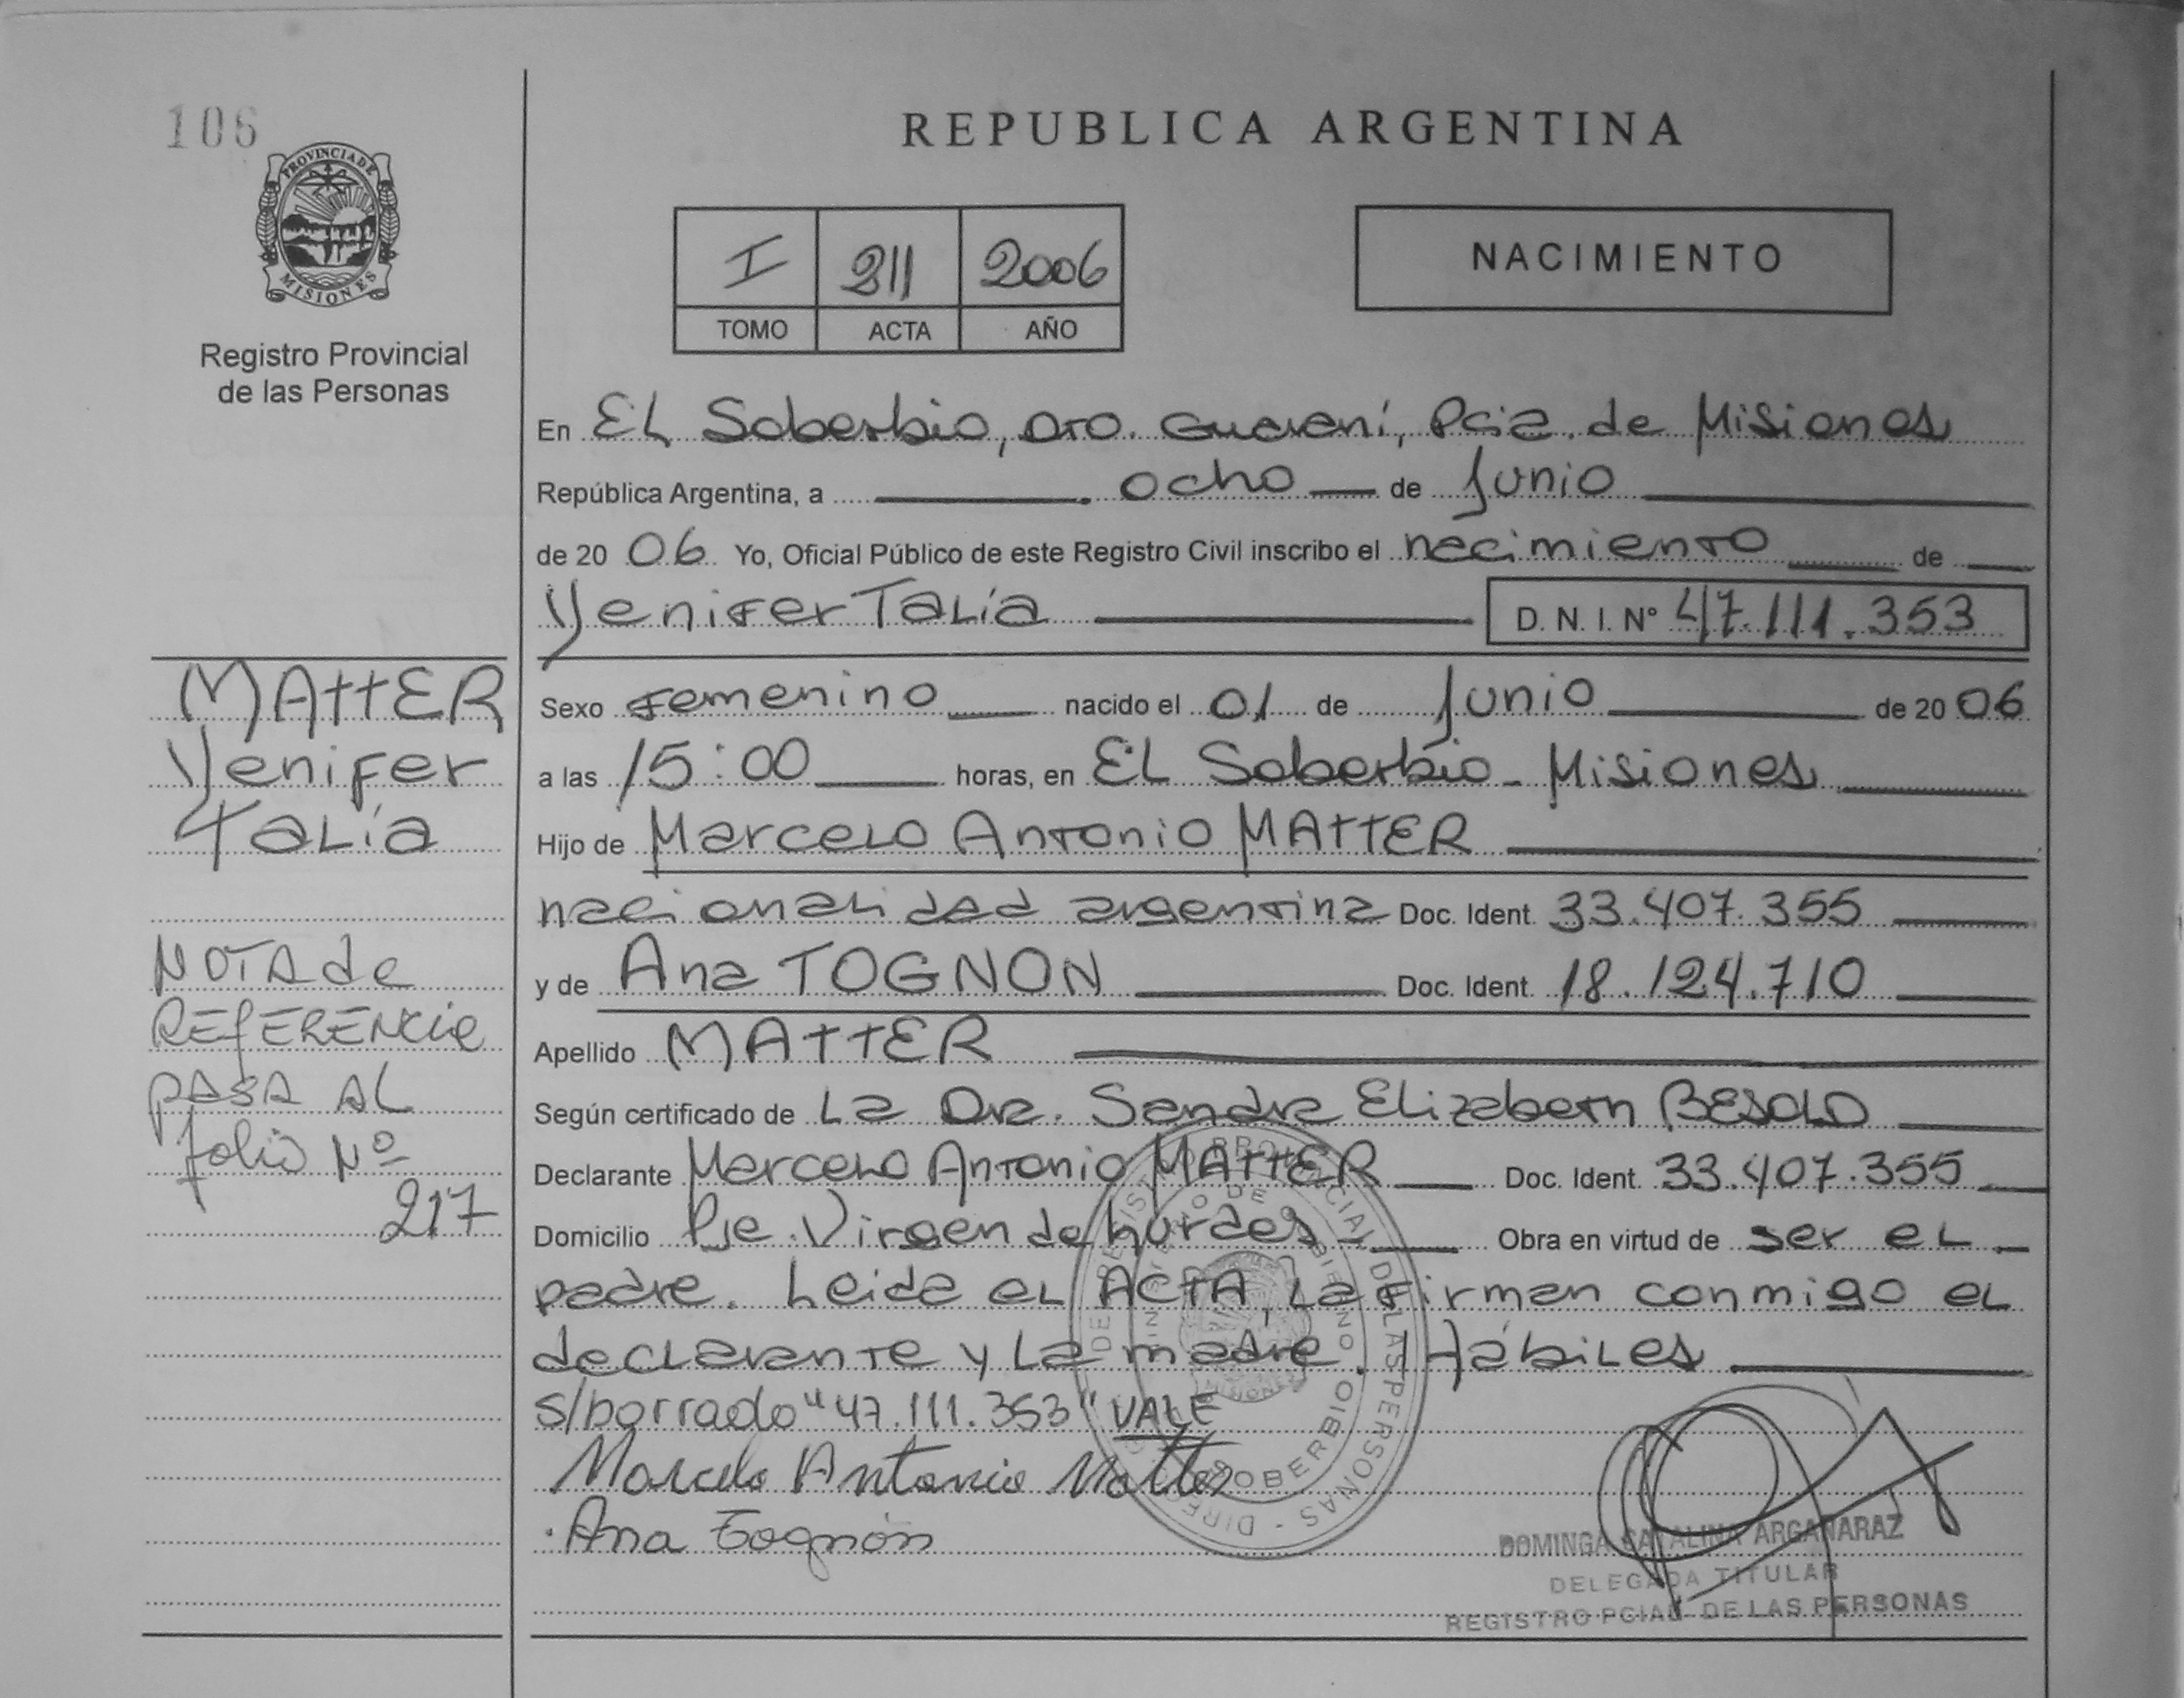 106
PROVINCIA DE
MISIONES
Registro Provincial
de las Personas
REPUBLICA ARGENTINA
I 211 2006
TOMO ACTA AÑO
NACIMIENTO
En EL Soberbio, Dto. Guaraní, Pcia. de Misiones
República Argentina, a ocho de Junio
de 20 06 Yo, Oficial Público de este Registro Civil inscribo el nacimiento de
Yenifer Talía D. N. I. Nº 47.111.353
MATTER
Yenifer
Talía
NOTA de
REFERENCIA
PASA AL
folio Nº
217
Sexo Femenino nacido el 01 de Junio de 20 06
a las 15:00 horas, en EL Soberbio - Misiones
Hijo de Marcelo Antonio MATTER
nacionalidad argentina Doc. Ident. 33.407.355
y de Ana TOGNON Doc. Ident. 18.124.710
Apellido MATTER
Según certificado de La Dra. Sandra Elizabeth BESOLD
Declarante Marcelo Antonio MATTER Doc. Ident. 33.407.355
Domicilio Pje. Virgen de Lurdes Obra en virtud de ser el
padre. Leida el ACTA, la firman conmigo el
declarante y la madre. Hábiles
s/borrado "47.111.353" VALE
Marcelo Antonio Matter
Ana Tognón
DOMINGA CATALINA ARGAÑARAZ
DELEGADA TITULAR
REGISTRO PCIAL DE LAS PERSONAS